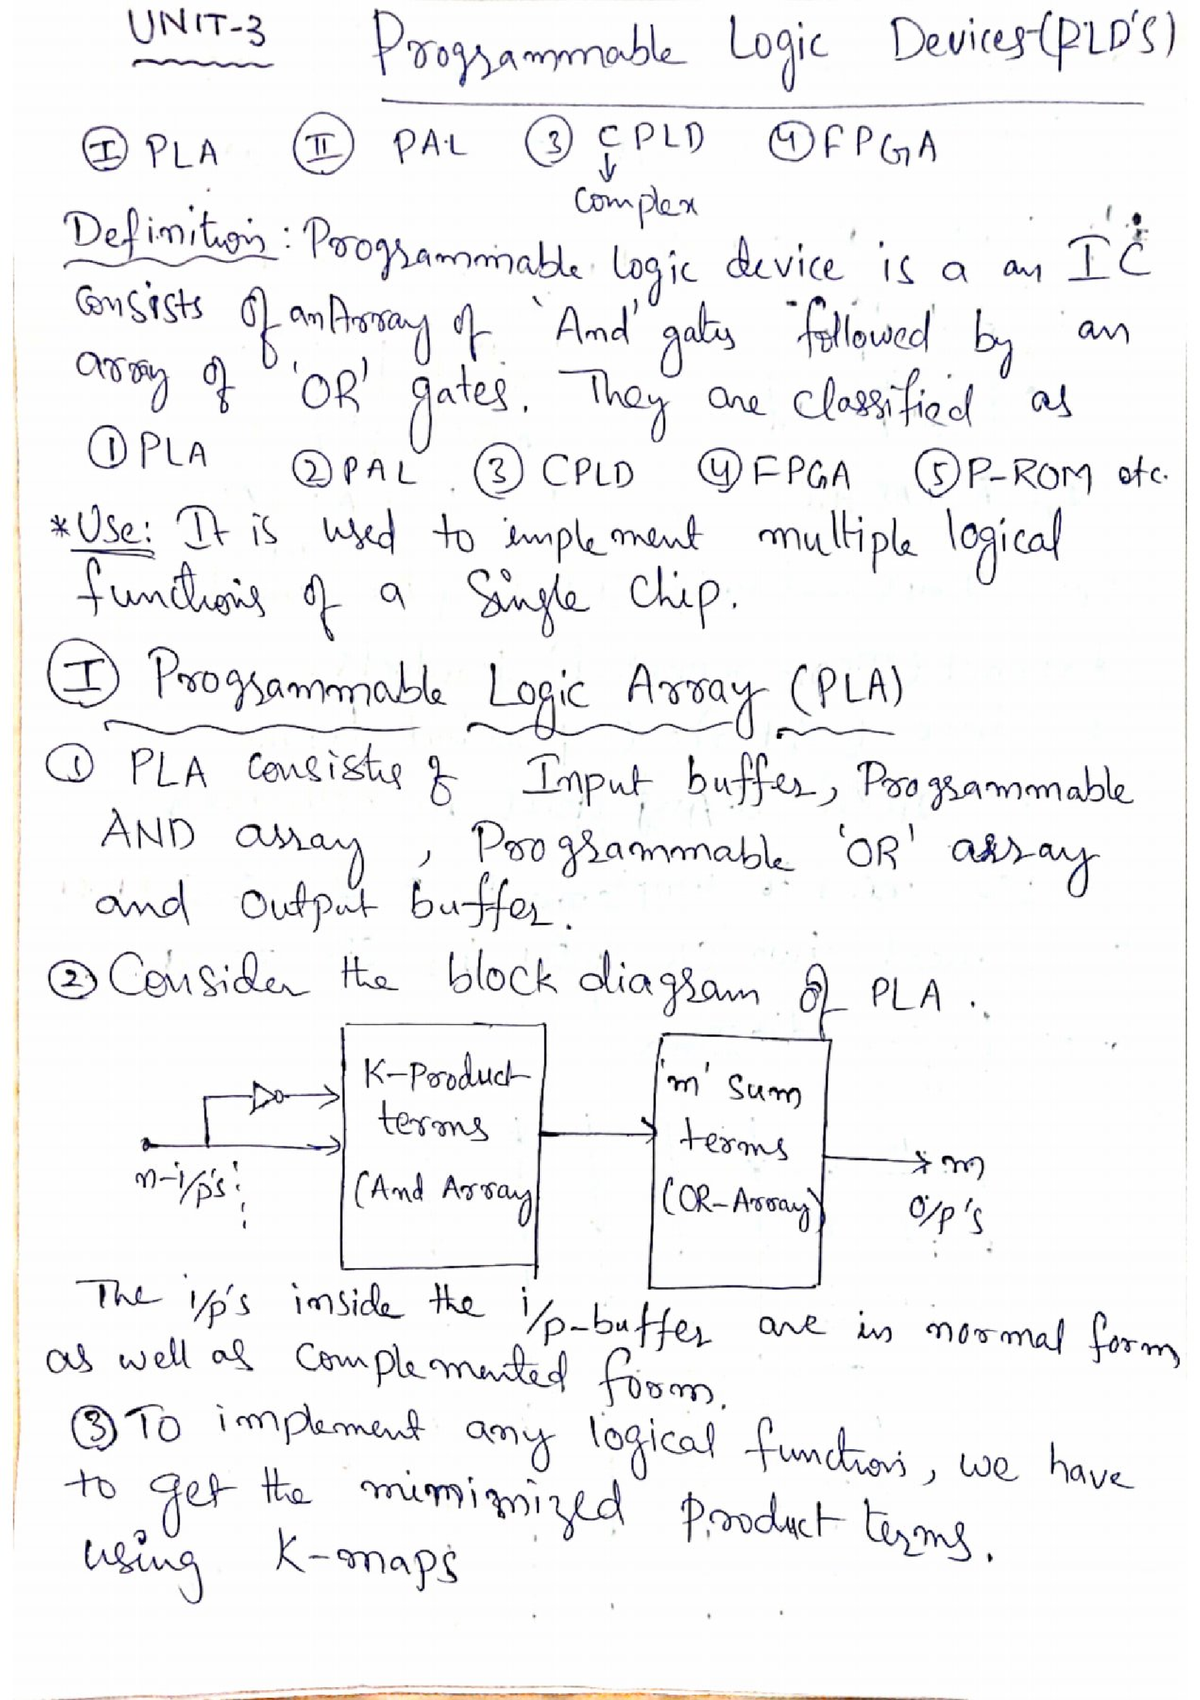 UNIT-3 Programmable Logic Devices-(PLD'S)
I PLA II PAL 3 CPLD 4 FPGA
Complex
Definition: Programmable logic device is a an IC
Consists of an Array of 'And' gates followed by an
array of 'OR' gates. They are classified as
1 PLA 2 PAL 3 CPLD 4 FPGA 5 P-ROM etc.
*Use: It is used to implement multiple logical
functions of a Single Chip.
I Programmable Logic Array (PLA)
1 PLA consists of Input buffer, Programmable
AND array, Programmable 'OR' array
and output buffer.
2 Consider the block diagram of PLA.
K-Product
terms
(And Array
'm' Sum
terms
(OR-Array)
n-i/p's
m
o/p's
The i/p's inside the i/p-buffer are in normal form
as well as complemented form.
3 To implement any logical function, we have
to get the minimized product terms.
using K-maps